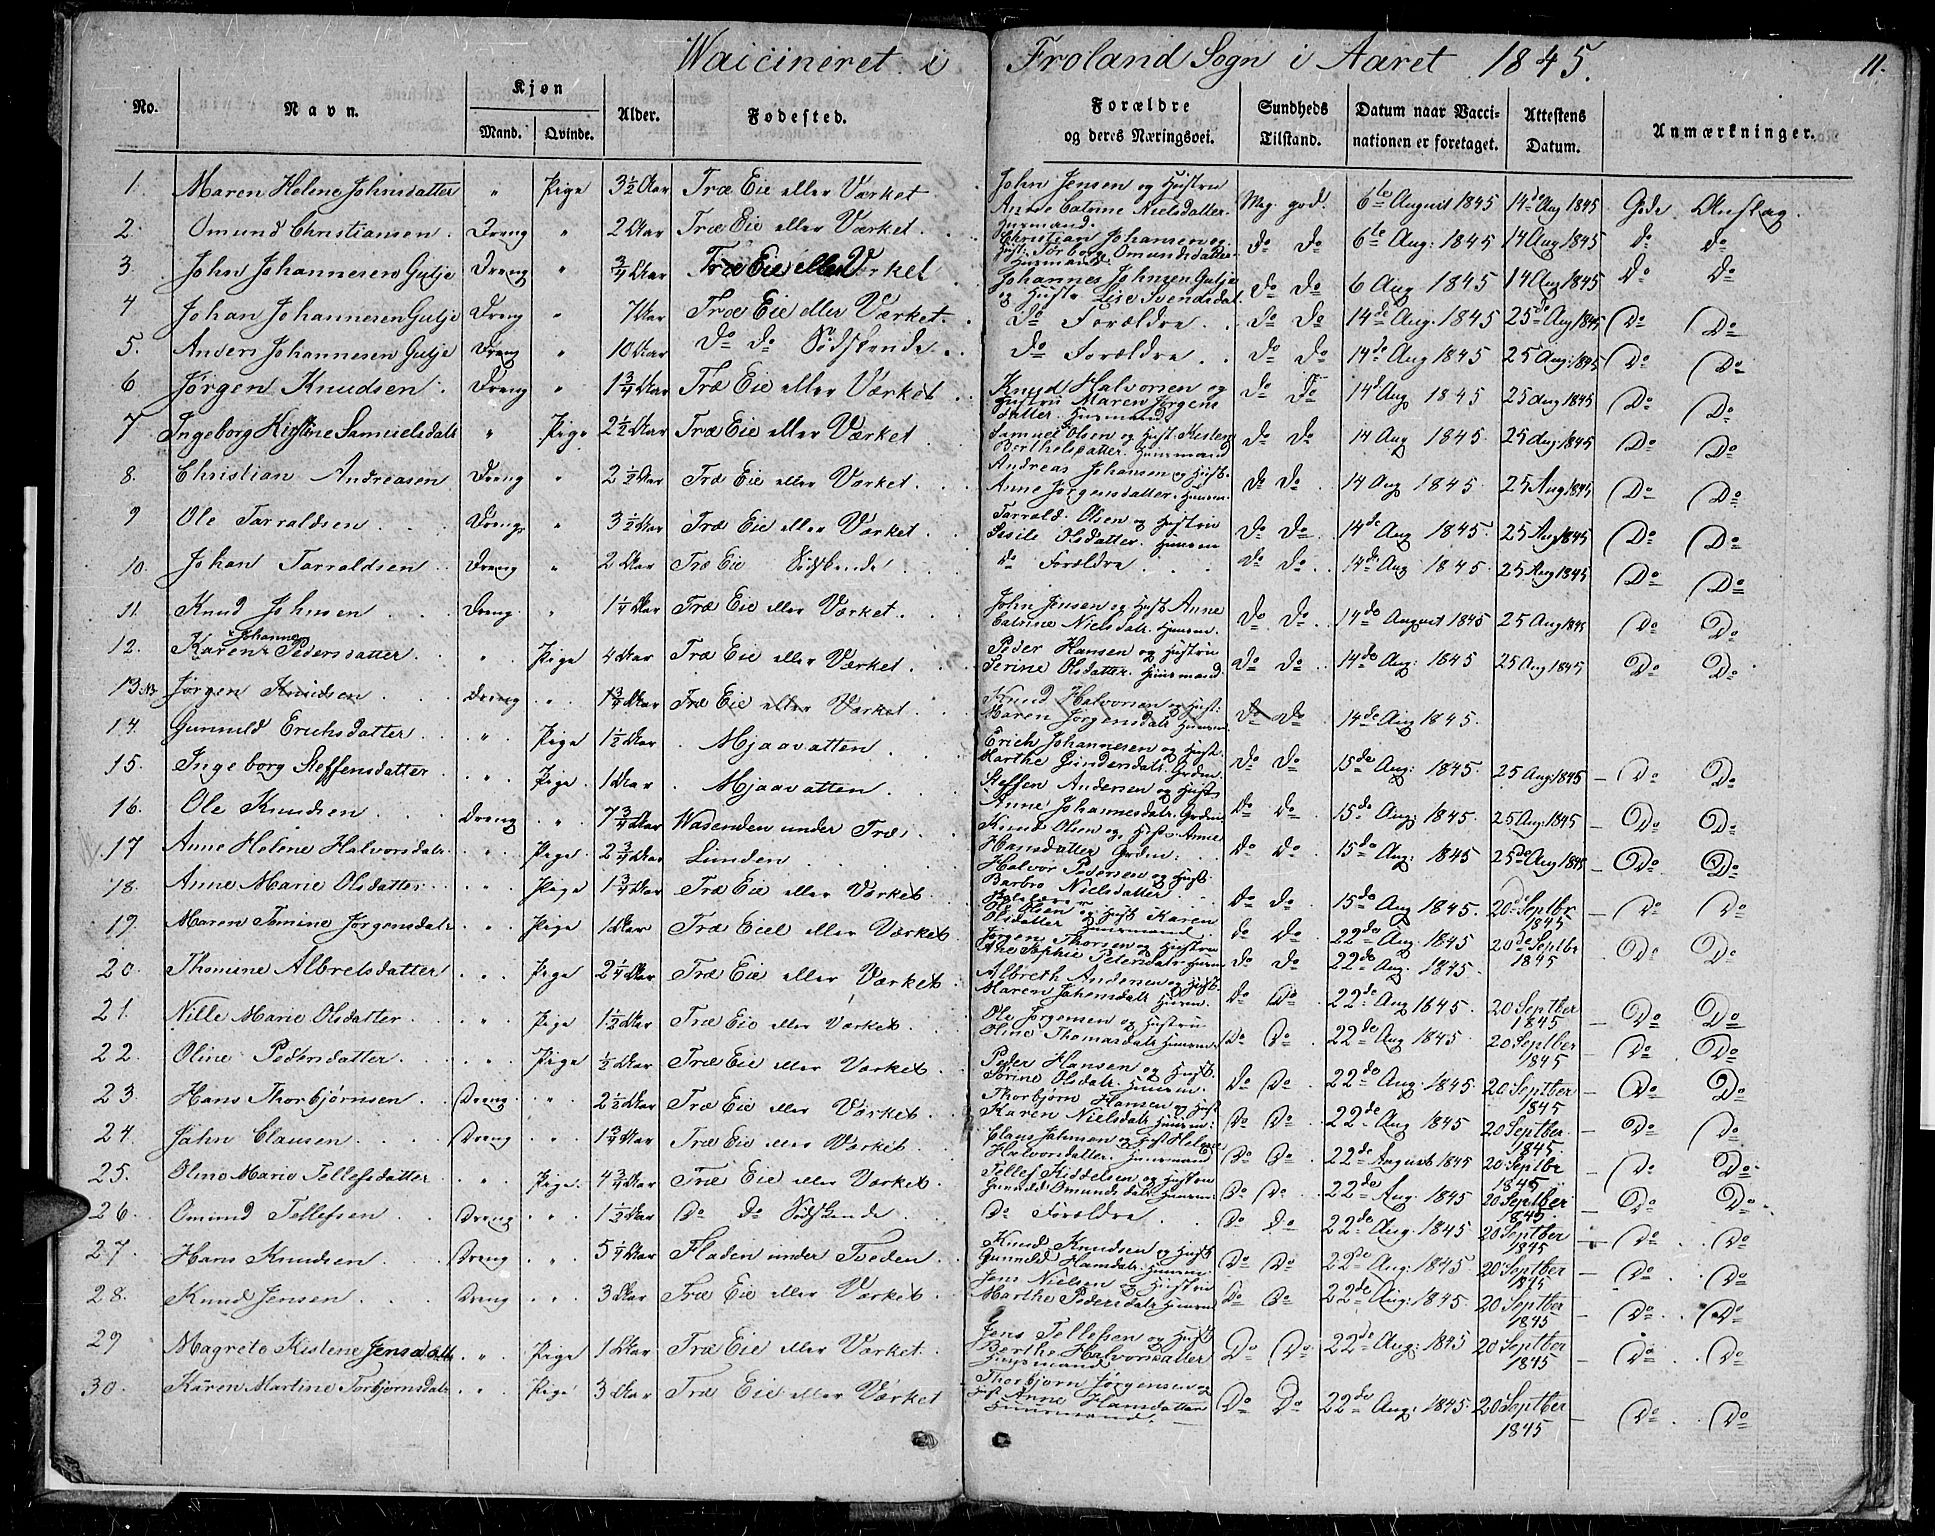 Waicineret i Froland Sogn i Aaret 1845.
11.
No. Navn. Kjøn Mand. Qvinde. Alder. Fødested. Forældre og deres Næringsvei. Sundheds Tilstand. Datum naar Vaccinationen er foretaget. Attestens Datum. Anmærkninger.
1. Maren Helene Johnsdatter " Pige 3½ Aar Træ Eie eller Værket John Jensen og Hustru Anne Catrine Nielsdatter. Huusmand. Meg. god. 6te August 1845 14d Aug 1845 Gode Anslag.
2. Omund Christiansen. Dreng " 2 Aar Træ Eie eller Værket. Christian Johansen og Hust: Torborg Omundsdatter Huusmand Do Do 6te Aug: 1845 14 Aug 1845 do do
3. John Johannesen Gulje Dreng " ¾ Aar Træ Eie eller Værket Johannes Johnsen Gulje og Hust. Lise Svendsdat. Do Do 6 Aug 1845 14 Aug 1845 Do Do
4 Johan Johannesen Gulje Dreng " 7 Aar Træ Eie eller Værket. Do Forældre Do Do 14de Aug. 1845 25de Aug 1845 Do Do
5. Anders Johannesen Gulje Dreng " 10 Aar Do Do Sødskende. Do Forældre Do Do 14de Aug 1845 25 Aug: 1845 Do Do
6 Jørgen Knudsen. Dreng " 1¾ Aar Træ Eie eller Værket Knud Halvorsen og Hustru Maren Jørgensdatter. Huusmand Do Do 14d Aug 1845 25 Aug 1845 Do Do
7 Ingeborg Kirstine Samuelsdatr " Pige 2½ Aar Træ Eie eller Værket Samuel Olsen og Hust. Kisten Berthelsdatter Huusmand Do Do 14 Aug 1845 25 Aug 1845 Do Do
8. Christian Andreasen Dreng " 2½ Aar Træ Eie eller Værket. Andreas Johansen og Hust. Anne Jørgensdatter. Huusm. Do Do 14 Aug 1845 25 Aug 1845 Do Do
9 Ole Tarraldsen Dreng " 3½ Aar Træ Eie eller Værket. Tarrald Olsen og Hustru Sesile Olsdatter. Huusm Do Do 14de Aug 1845. 25 Aug 1845 Do Do
10. Johan Tarraldsen Dreng " 2 Aar Træ Eie Sødskende do Forældre Do Do 14de Aug 1845. 25 Aug 1845 Do Do
11. Knud Johnsen Dreng. " 1¼ Aar Træ Eie eller Værket. John Jensen og Hust. Anne Catrine Nielsdatr. Huusm. Do Do 14de August 1845 25 Aug 1845 Do Do
12. Karen Johanne Pedersdatter. " Pige 4 Aar Træ Eie eller Værket. Peder Hansen og Hustru Serine Olsdatter. Huusmand. Do Do 14de Aug: 1845 25 Aug 1845 Do Do
13 Jørgen Knudsen Dreng " 1¾ Aar Træ Eie eller Værket. Knud Halvorsen og Hust: Maren Jørgensdatr. Huusm. Do Do 14de Aug 1845.
14. Gunnild Erichsdatter " Pige 1½ Aar Mjaavatten. Erich Johannesen og Hust. Marthe Gundersdatr. Grdm. Do Do 15de Aug: 1845. 25 Aug: 1845 Do Do
15. Ingeborg Steffensdatter " Pige 1 Aar Mjaavatten. Steffen Andersen og Hust. Anne Johannesdatr. Grdm Do Do 15de Aug: 1845. 25 Aug: 1845 Do Do
16. Ole Knudsen Dreng " 7¾ Aar Wasenden under Træ Knud Olsen og Hust. Anne Hansdatter Grdm: Do Do 15de Aug: 1845 25de Aug 1845 Do Do
17 Anne Helene Halvorsdatr. " Pige 2¾ Aar Lunden Halvor Pedersen og Hust. Barbro Nielsdatter Do Do 15de Aug 1845. 20d Septbr 1845 Do Do
18. Anne Marie Olsdatter " Pige 1¾ Aar Træ Eie eller Værket. Ole Olsen og Hust. Karen Olsdatter Huusmand Do Do 22de Aug 1845 20de Septbr 1845 Do Do
19. Maren Tomine Jørgensdatr " Pige 1 Aar Træ Eiel eller Værket Jørgen Thorsen og Hustru Ane Sophie Petersdatr. Huusm Do Do 22de Aug. 1845.
20. Thomine Albretsdatter " Pige 2¼ Aar Træ Eie eller Værket Albreth Andersen og Hust. Maren Johnsdatr. Huusm. Do Do 22de Aug 1845. 20 Septber 1845 Do Do
21. Nille Marie Olsdatter " Pige 1½ Aar Træ Eie eller Værket. Ole Jørgensen og Hustru Oline Thomasdatr. Huusm. Do Do 22de Aug 1845 20 Septber 1845 Do Do
22. Oline Pedersdatter " Pige ½ Aar Træ Eie eller Værket. Peder Hansen og Hust. Serine Olsdatr. Huusm. Do Do 22de Aug: 1845 20 Septber 1845 Do Do
23. Hans Thorbjørnsen Dreng " 2½ Aar Træ Eie eller Værket Thorbjørn Hansen og Hust Karen Nielsdatr. Huusm: Do Do 22de Aug 1845 20 Septber 1845 Do Do
24. John Clausen Dreng " 1¾ Aar Træ Eie eller Værket. Claus Johnsen og Hust Helene Halvorsdatter. Huusmand Do Do 22de August 1845 20 Septbr 1845 Do Do
25. Oline Marie Tellefsdatter " Pige. 4¾ Aar Træ Eie eller Værket. Tellef Kiddelsen og Hustru Gunnild Omundsdatr Huusm. Do Do 22de Aug. 1845 20 Septber 1845. Do Do
26. Omund Tellefsen Dreng " 1½ Aar Do Do Sødskende. Do Forældre Do Do 22de Aug. 1845 20 Septber 1845 Do Do
27. Hans Knudsen Dreng " 5¼ Aar Fladen under Tveden. Knud Knudsen og Hust Gunnild Hansdatr. Huusm. Do Do 22de Aug: 1845 20 Septber 1845 Do Do
28. Knud Jensen Dreng " 3 Aar Træ Eie eller Værket. Jens Nielsen og Hustru Marthe Pedersdatr. Huusm Do Do 22de Aug: 1845. 20 Septber 1845 Do Do
29 Magrete Kistene Jensdatter " Pige 1 Aar Træ Eie eller Værket. Jens Tellefsen og Hust Berthe Halvorsdatter Huusmand Do Do 22de Aug: 1845 20 Septber 1845 Do Do
30. Karen Martine Torbjørnsdatr " Pige 3 Aar Træ Eie eller Værket Thorbjørn Jørgensen og Hust Anne Hansdatter Huusmand. Do Do 22de Aug: 1845. 20 Septber 1845 Do Do